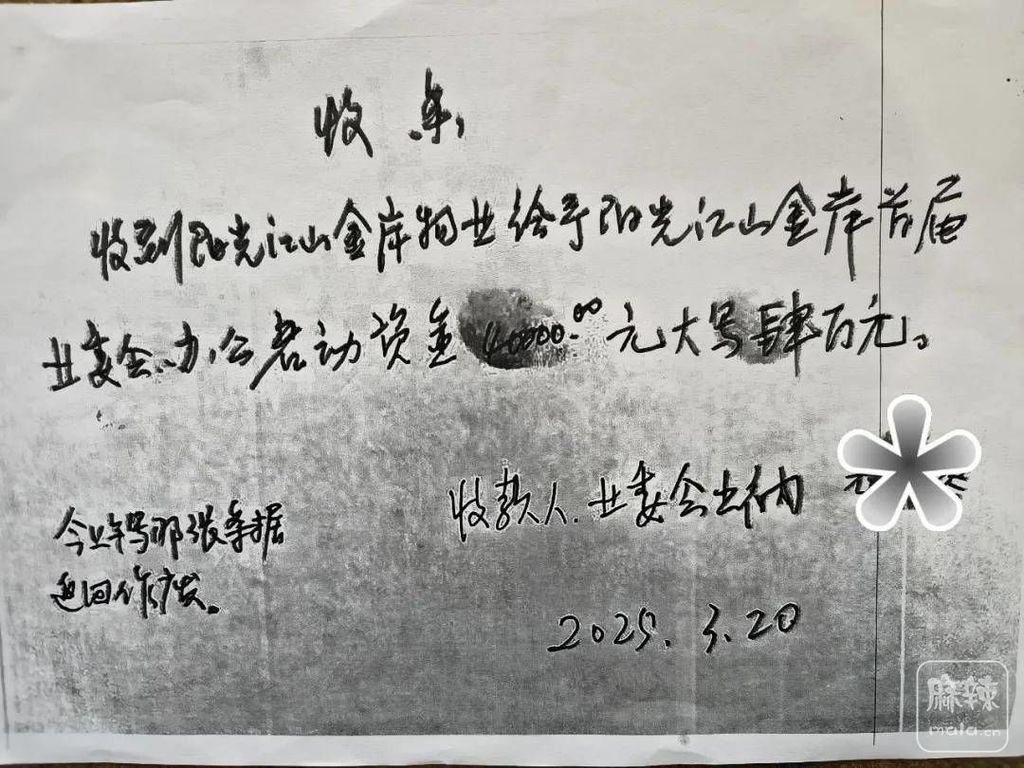 收条
收到阳光江山金岸物业给予阳光江山金岸首届
业委会办公启动资金40000.00元大写肆万元。
收款人.业委会出纳
今上午写那张条据
返回作废。
2025.3.20
麻辣
mala.cn